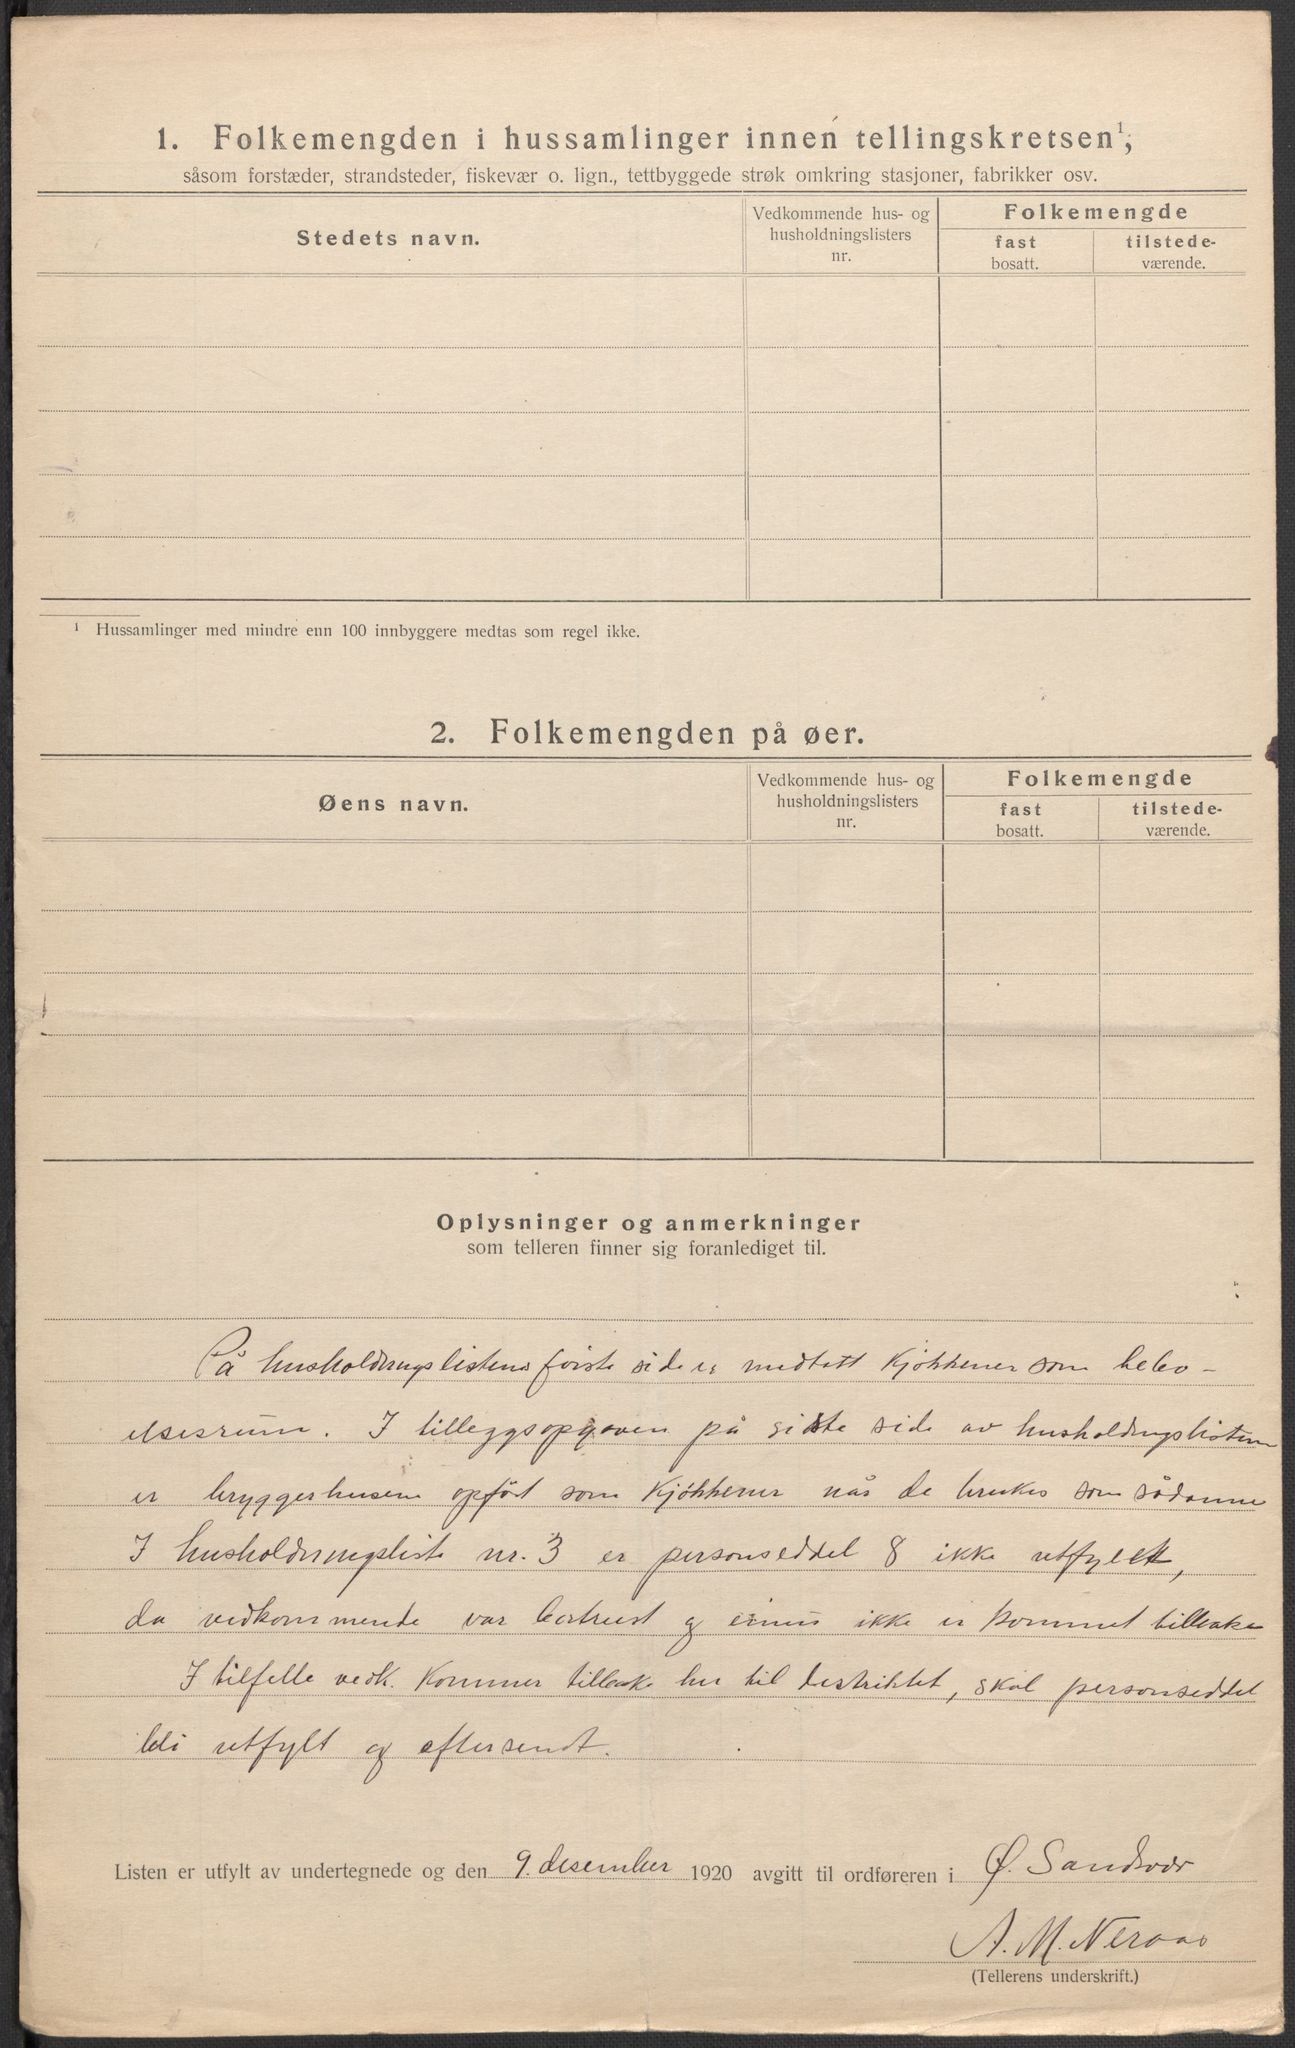 1. Folkemengden i hussamlinger innen tellingskretsen¹,
såsom forstæder, strandsteder, fiskevær o. lign., tettbyggede strøk omkring stasjoner, fabrikker osv.
Stedets navn.
Vedkommende hus- og
husholdningslisters
nr.
Folkemengde
fast
bosatt.
tilstede-
værende.
¹ Hussamlinger med mindre enn 100 innbyggere medtas som regel ikke.
2. Folkemengden på øer.
Øens navn.
Vedkommende hus- og
husholdningslisters
nr.
Folkemengde
fast
bosatt.
tilstede-
værende.
Oplysninger og anmerkninger
som telleren finner sig foranlediget til.
På husholdningslistens første side er medtatt kjøkkener som bebo-
elsesrum. I tilleggsopgaven på siste side av husholdningslisten
er bryggerhusene opført som kjøkkener når de brukes som sådanne
I husholdningsliste nr. 3 er personseddel 8 ikke utfyllt,
da vedkommende var bortreist og ikke er kommet tilbake
I tilfelle vedk. kommer tilbake her til distriktet, skal personseddel
bli utfylt og eftersendt.
Listen er utfylt av undertegnede og den 9. desember 1920 avgitt til ordføreren i Ø. Sandsvær
A. M. Neraas
(Tellerens underskrift.)